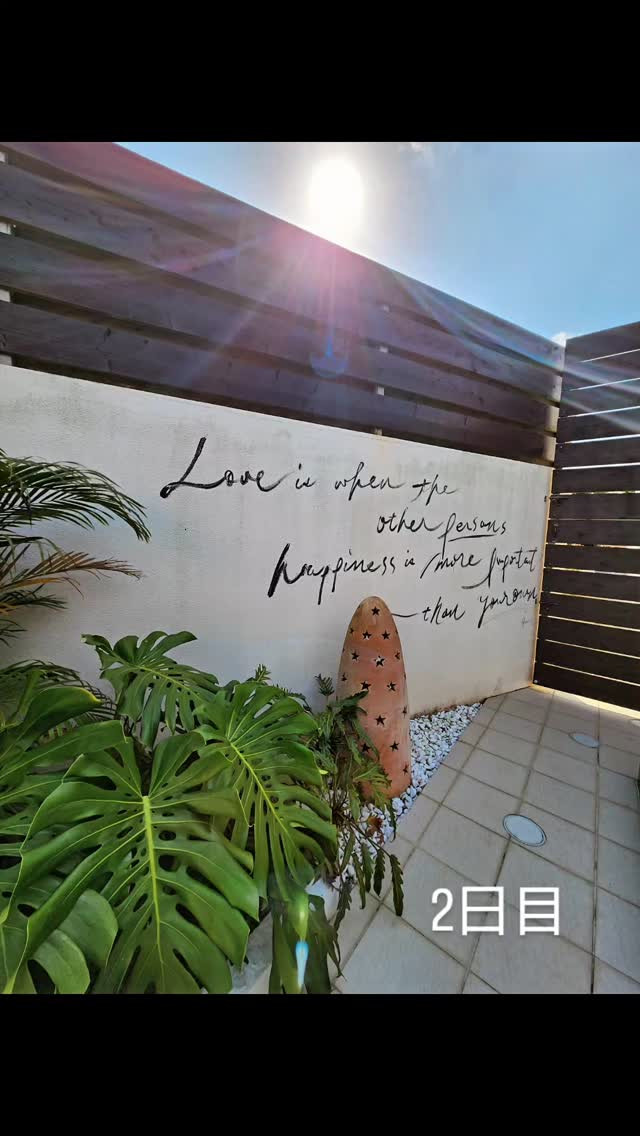 Love is when the
other persons
happiness is more important
than your own
2日目